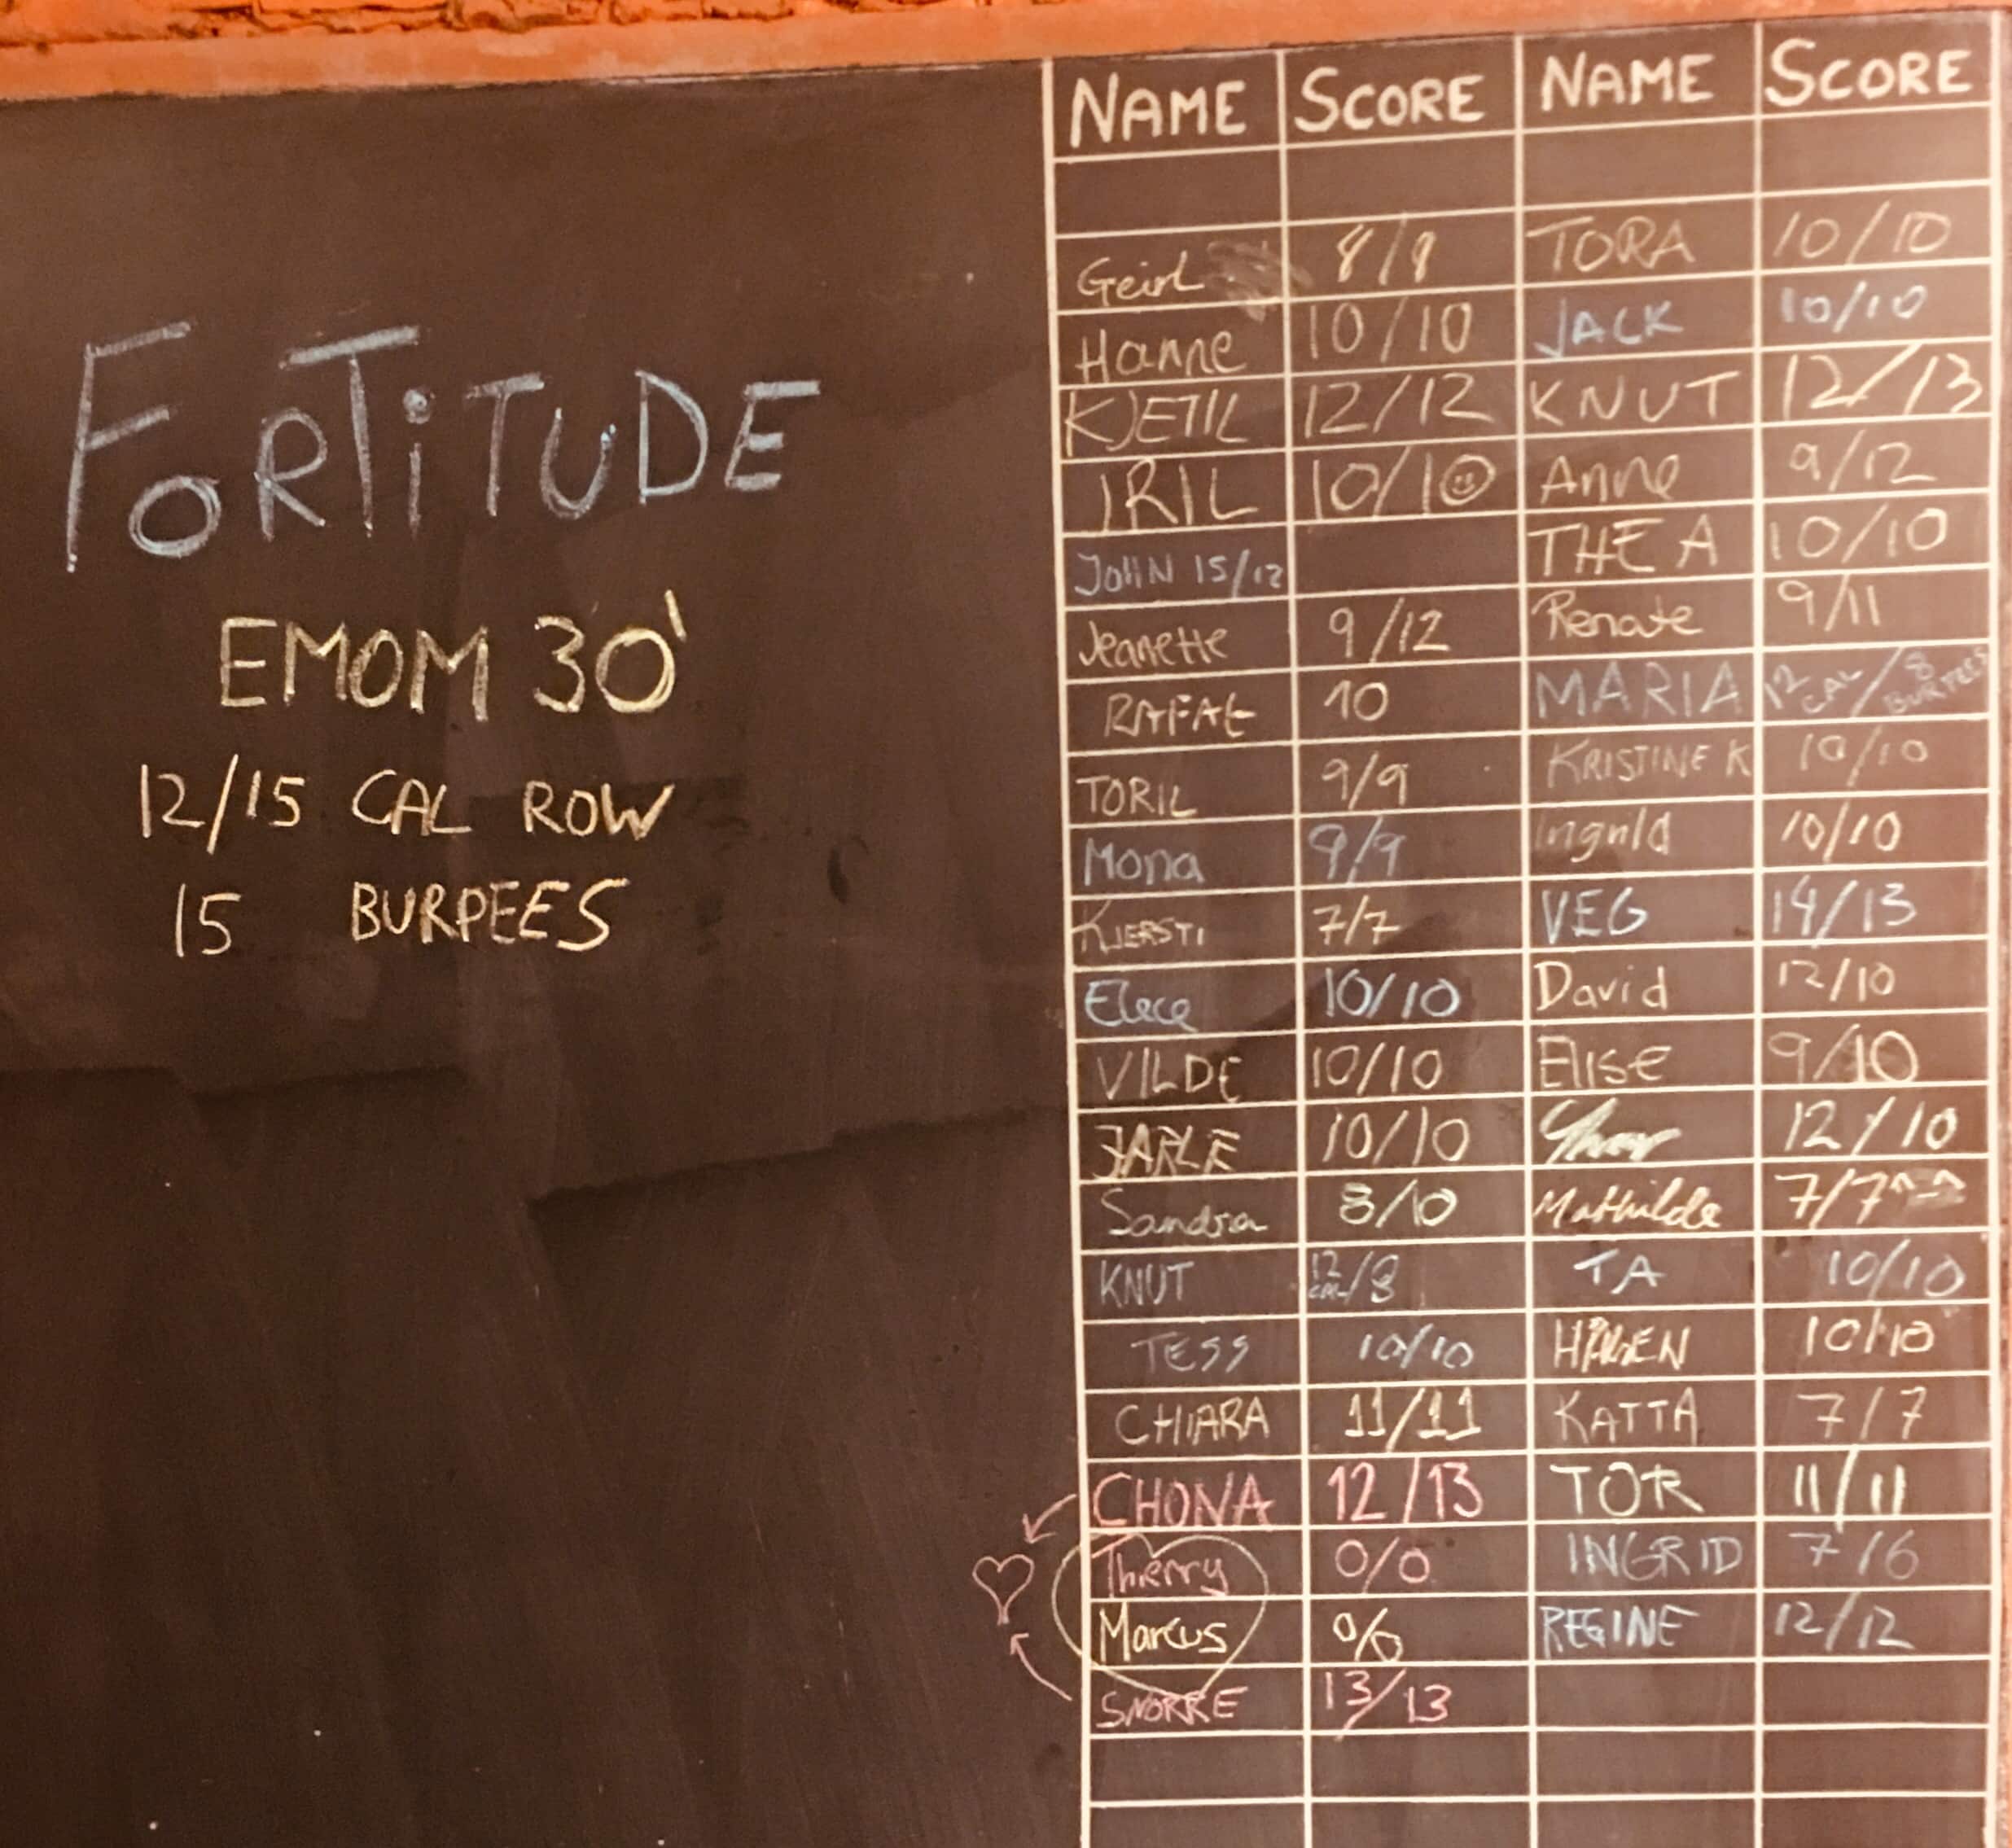 FORTiTUDE
EMOM 30'
12/15 CAL ROW
15 BURPEES
NAME SCORE NAME SCORE
Geirl 8/9 TORA 10/10
Hanne 10/10 JACK 10/10
KJETIL 12/12 KNUT 12/13
IRIL 10/10 Anne 9/12
JOHN 15/12 THEA 10/10
Jeanette 9/12 Renate 9/11
RAFAŁ 10 MARIA 12 CAL/8 BURPEES
TORIL 9/9 KRISTINE K 10/10
Mona 9/9 Ingrild 10/10
KJERSTI 7/7 VEG 14/13
10/10 David 12/10
VILDE 10/10 Elise 9/10
JARLE 10/10 12/10
Sandra 8/10 Mathilde 7/7 ^-^
KNUT 12 CAL/8 TA 10/10
TESS 10/10 10/10
CHIARA 11/11 KATTA 7/7
CHONA 12/13 TOR 11/11
Thierry 0/0 INGRID 7/6
Marcus REGINE 12/12
SNORRE 13/13